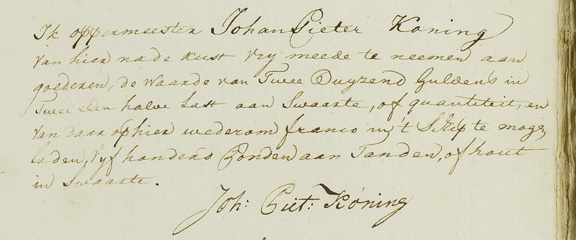 Ik oppermeester Johan Pieter Koning
van hier na de kust vry meede te neemen aan
goederen, de waarde van Twee Duyzend Guldens in
Twee een halve Last aan Swaarte, of quantiteit, en
van daar op hier wederom franco in 't Schip te moge
laden, Vyf honderd Ponden aan Tanden, of hout
in Swaarte.
Joh: Piet: Koning